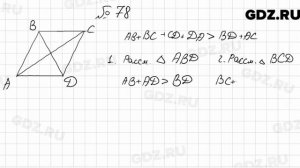 GDZ.RU
№ 78
B C
A D
AB+BC+CD+DA > BD+AC
1. Рассм. △ ABD 2. Рассм. △ BCD
AB+AD > BD BC+
GDZ.RU